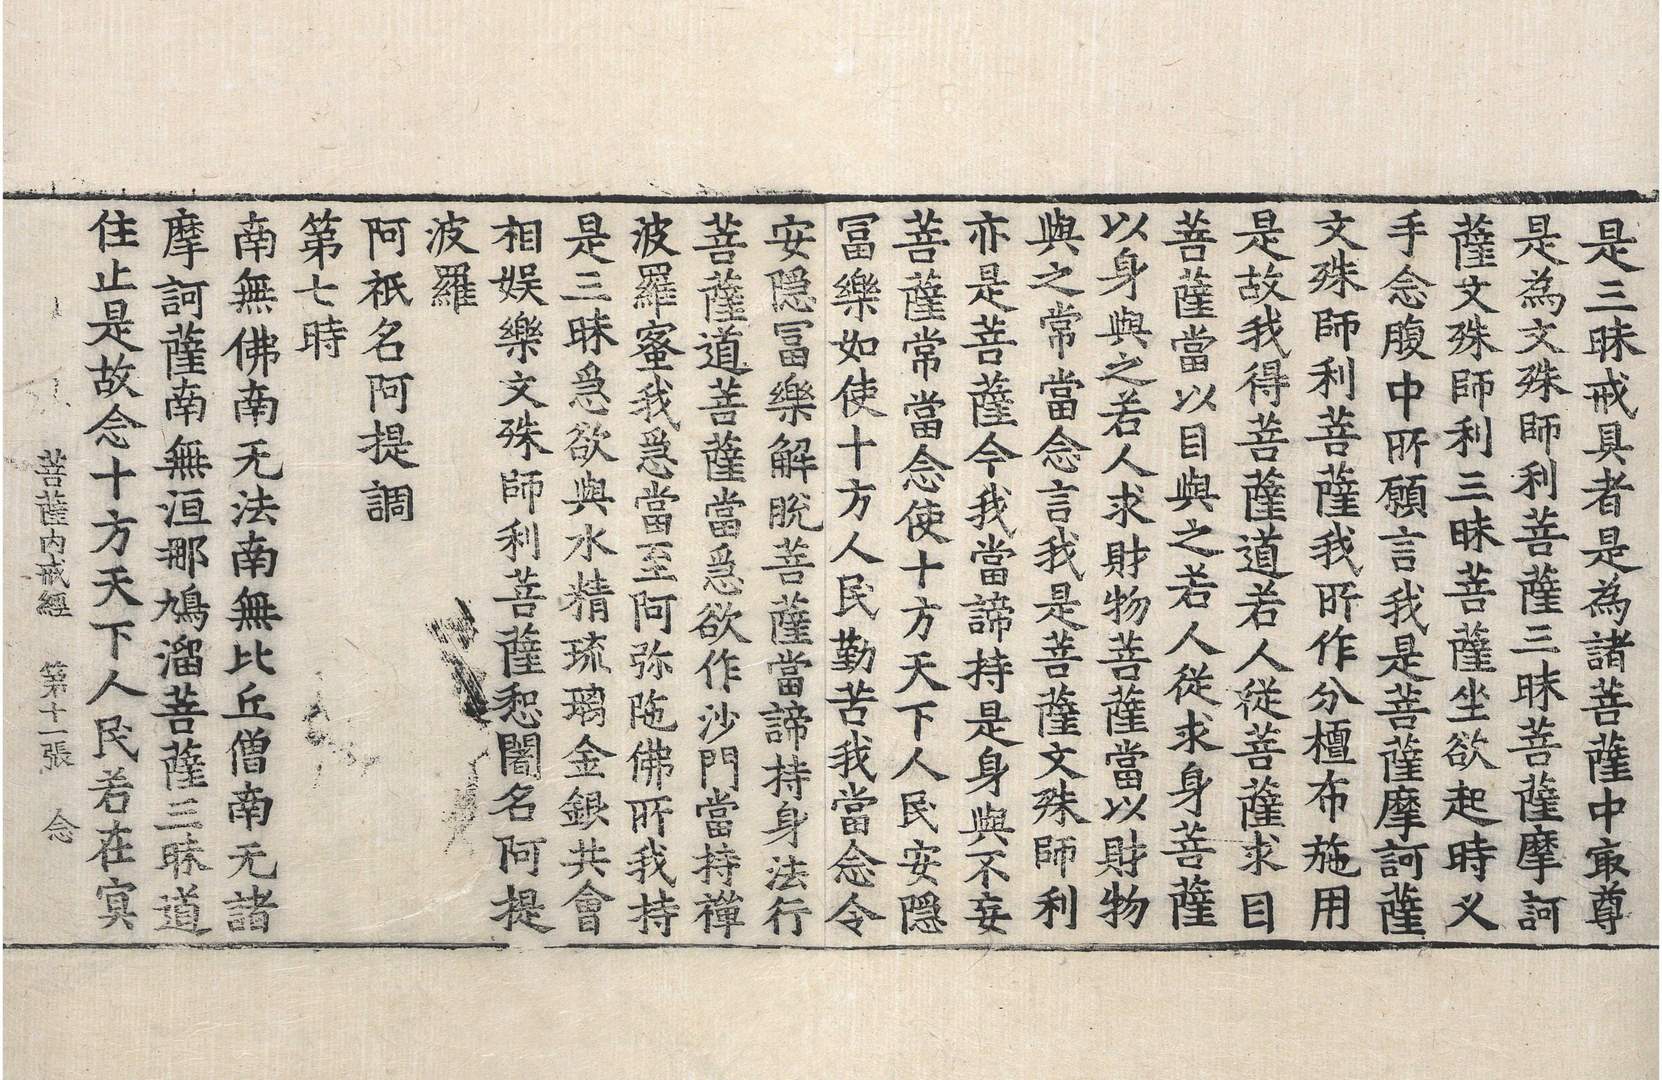 是三昧戒具者是為諸菩薩中㝡尊
是為文殊師利菩薩三昧菩薩摩訶
薩文殊師利三昧菩薩坐欲起時义
手念腹中所願言我是菩薩摩訶薩
文殊師利菩薩我所作分檀布施用
是故我得菩薩道若人從菩薩求目
菩薩當以目與之若人從求身菩薩
以身與之若人求財物菩薩當以財物
與之常當念言我是菩薩文殊師利
亦是菩薩今我當諦持是身與不妄
菩薩常當念使十方天下人民安隱
冨樂如使十方人民勤苦我當念令
安隱冨樂解脫菩薩當諦持身法行
菩薩道菩薩當爲欲作沙門當持禪
波羅蜜我爲當至阿弥陁佛所我持
是三昧爲欲與水精琉璃金銀共會
相娛樂文殊師利菩薩惒闍名阿提
波羅
阿祇名阿提調
第七時
南無佛南无法南無比丘僧南无諸
摩訶薩南無洹那鳩溜菩薩三昧道
住止是故念十方天下人民若在㝠
菩薩内戒經 第十一張 念